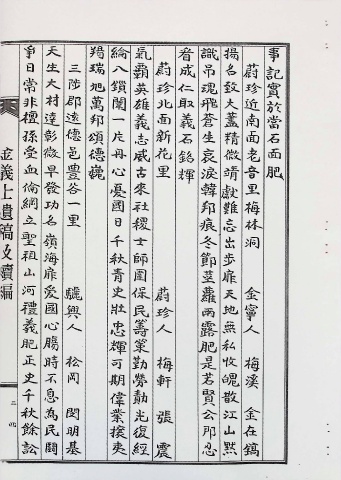 事記實於當石面肥
蔚珍近南面老音里梅林洞 金寧人 梅溪 金在鎬
揚名敎大蓋精微靖獻難忘出步扉天地無私收魄散江山黙
識吊魂飛蒼生哀淚韓邦痕冬節莖蘿雨露肥是若賢公即忍
者成仁取義石銘輝
蔚珍北面新花里 蔚珍人 梅軒 張震
氣霸英雄義志威古來社稷士師圍保民籌策勤勞動光復經
綸八鎖闈一片丹心憂國日千秋靑史壯忠輝可期偉業援夷
羯瑞旭萬邦頌德巍
三陟郡遠德邑豊谷一里 驪興人 松岡 閔明基
天生大材達彰微早發功名嶺海扉愛國心腸時不息為民鬪
爭日常非檀孫受血倫綱立聖祖山河禮義肥正史千秋餘訟
金義士遺稿及續編
二四